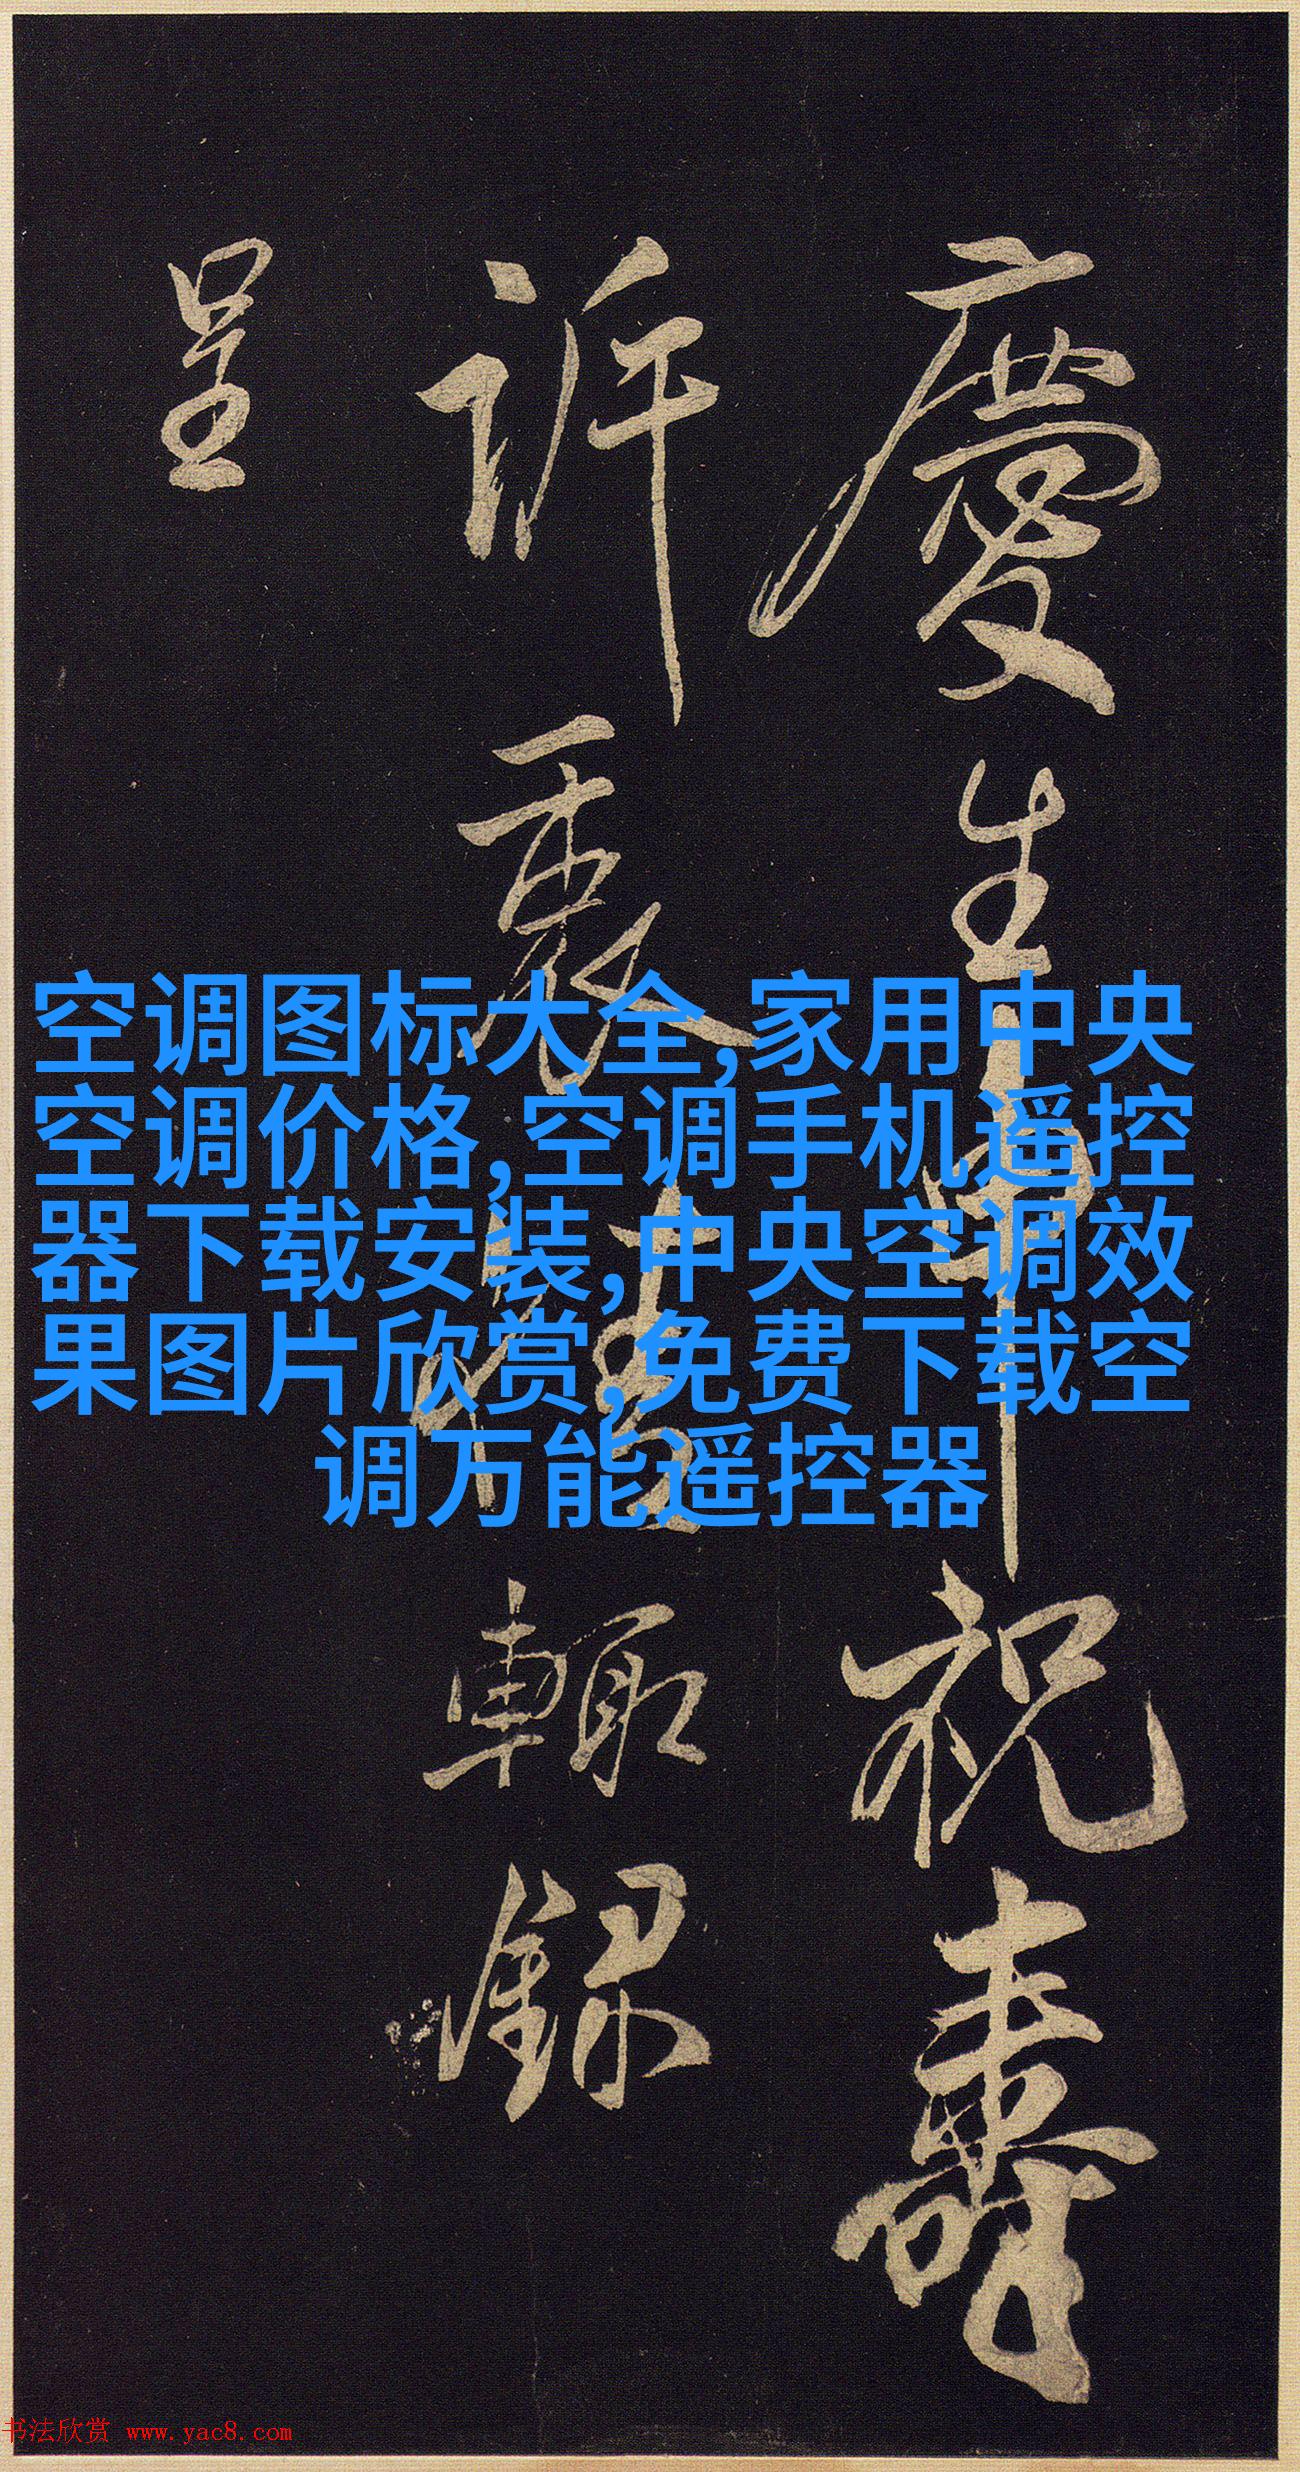 慶生申祝壽
訴衷情輙録
呈
空调图标大全,家用中央
空调价格,空调手机遥控
器下载安装,中央空调效
果图片欣赏,免费下载空
调万能遥控器
书法欣赏 www.yac8.com